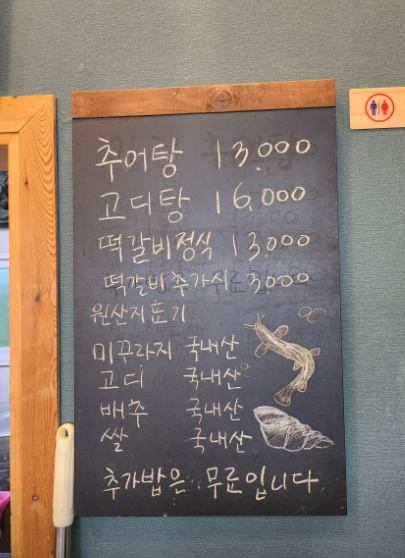 추어탕 13.000
고디탕 16.000
떡갈비정식 13.000
떡갈비추가시 3.000
원산지표기
미꾸라지 국내산
고디 국내산
배추 국내산
쌀 국내산
추가밥은 무료입니다